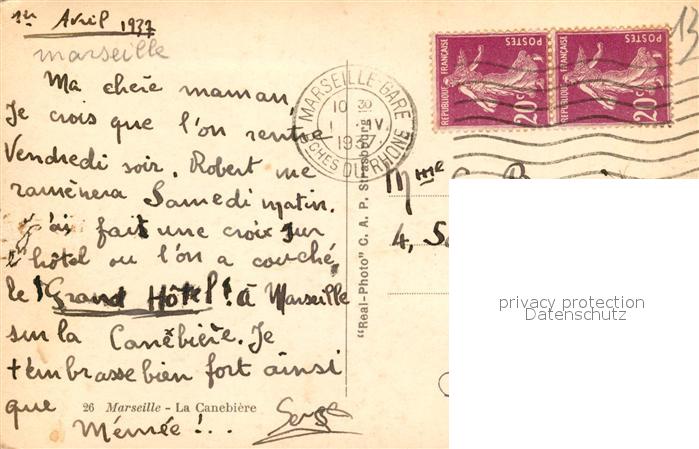 1er Avril 1937
marseille
Ma chère maman,
Je crois que l'on rentre
Vendredi soir. Robert me
ramènera Samedi matin.
j'ai fait une croix sur
l'hôtel ou l'on a couché,
le "Grand Hôtel! à Marseille
sur la Canèbière. Je
t'embrasse bien fort ainsi
que Mémée !..
Serge
26 Marseille - La Canebière
"Real-Photo" C. A. P. Strasbourg
MARSEILLE-GARE
10 30
1 IV
1937
BCHES DU RHONE
POSTES
REPUBLIQUE FRANÇAISE
20c
POSTES
REPUBLIQUE FRANÇAISE
20c
Mme
4, S
privacy protection
Datenschutz